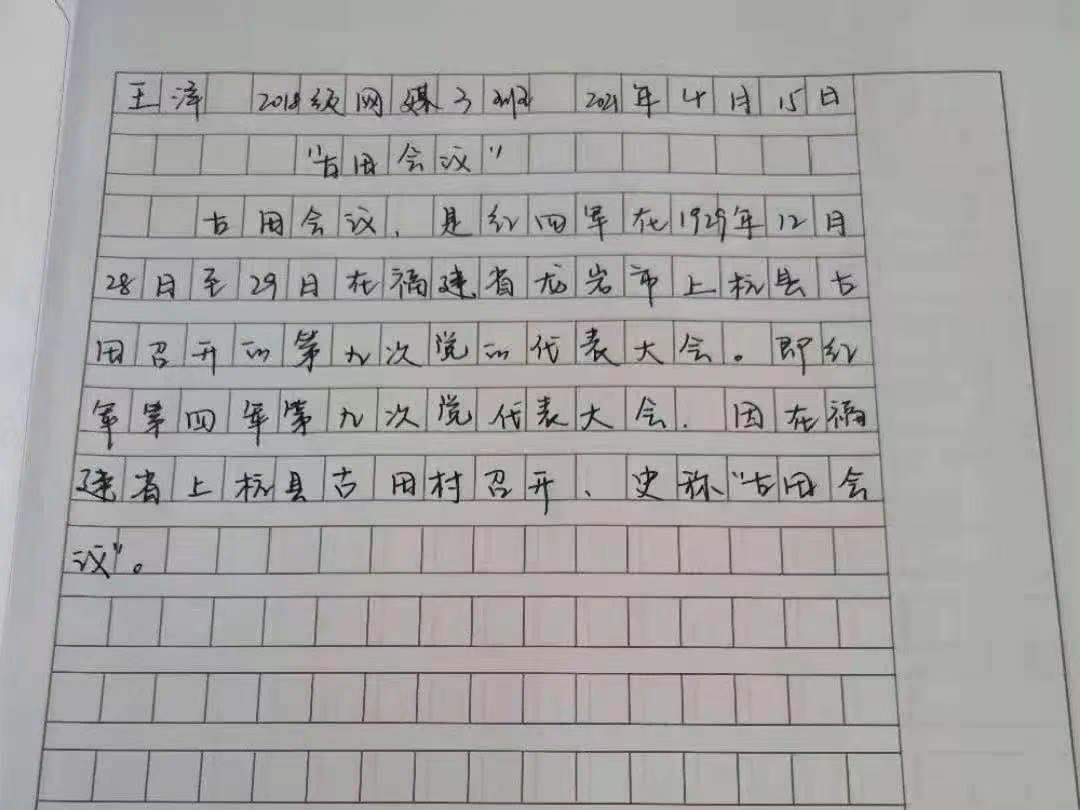 王泽 2018级网媒3班 2021年4月15日
"古田会议"
古田会议,是红四军在1929年12月
28日至29日在福建省龙岩市上杭县古
田召开的第九次党的代表大会。即红
军第四军第九次党代表大会.因在福
建省上杭县古田村召开、史称"古田会
议"。